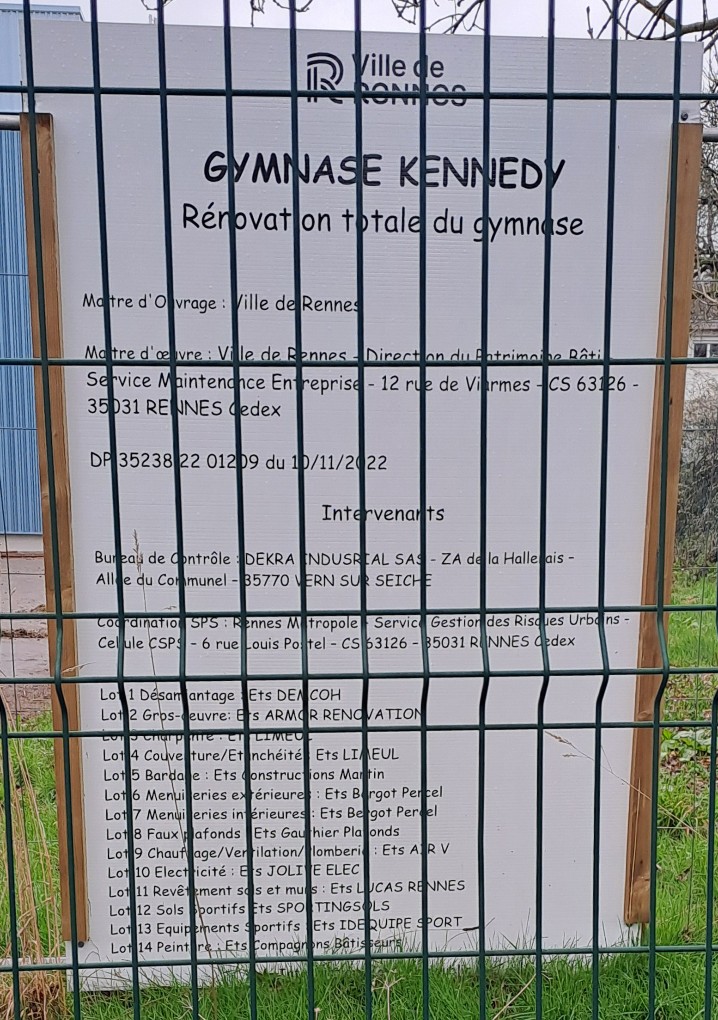 Ville de
Rennes
GYMNASE KENNEDY
Rénovation totale du gymnase
Maître d'Ouvrage : Ville de Rennes
Maître d'œuvre : Ville de Rennes - Direction du Patrimoine Bâti
Service Maintenance Entreprise - 12 rue de Viarmes - CS 63126 -
35031 RENNES Cedex
DP 35238 22 01209 du 10/11/2022
Intervenants
Bureau de Contrôle : DEKRA INDUSRIAL SAS - ZA de la Hallerais -
Allée du Communel - 35770 VERN SUR SEICHE
Coordination SPS : Rennes Métropole - Service Gestion des Risques Urbains -
Cellule CSPS - 6 rue Louis Postel - CS 63126 - 35031 RENNES Cedex
Lot 1 Désamiantage : Ets DEMCOH
Lot 2 Gros-oeuvre: Ets ARMOR RENOVATION
Lot 3 Charpente : ET LIMEUL
Lot 4 Couverture/Etanchéité : Ets LIMEUL
Lot 5 Bardage : Ets Constructions Martin
Lot 6 Menuiseries extérieures : Ets Bergot Percel
Lot 7 Menuiseries intérieures : Ets Bergot Percel
Lot 8 Faux plafonds : Ets Gauthier Plafonds
Lot 9 Chauffage/Ventilation/Plomberie : Ets AIR V
Lot 10 Electricité : Ets JOLIVE ELEC
Lot 11 Revêtement sols et murs : Ets LUCAS RENNES
Lot 12 Sols Sportifs Ets SPORTINGSOLS
Lot 13 Equipements Sportifs : Ets IDEQUIPE SPORT
Lot 14 Peinture : Ets Compagnons Bâtisseurs